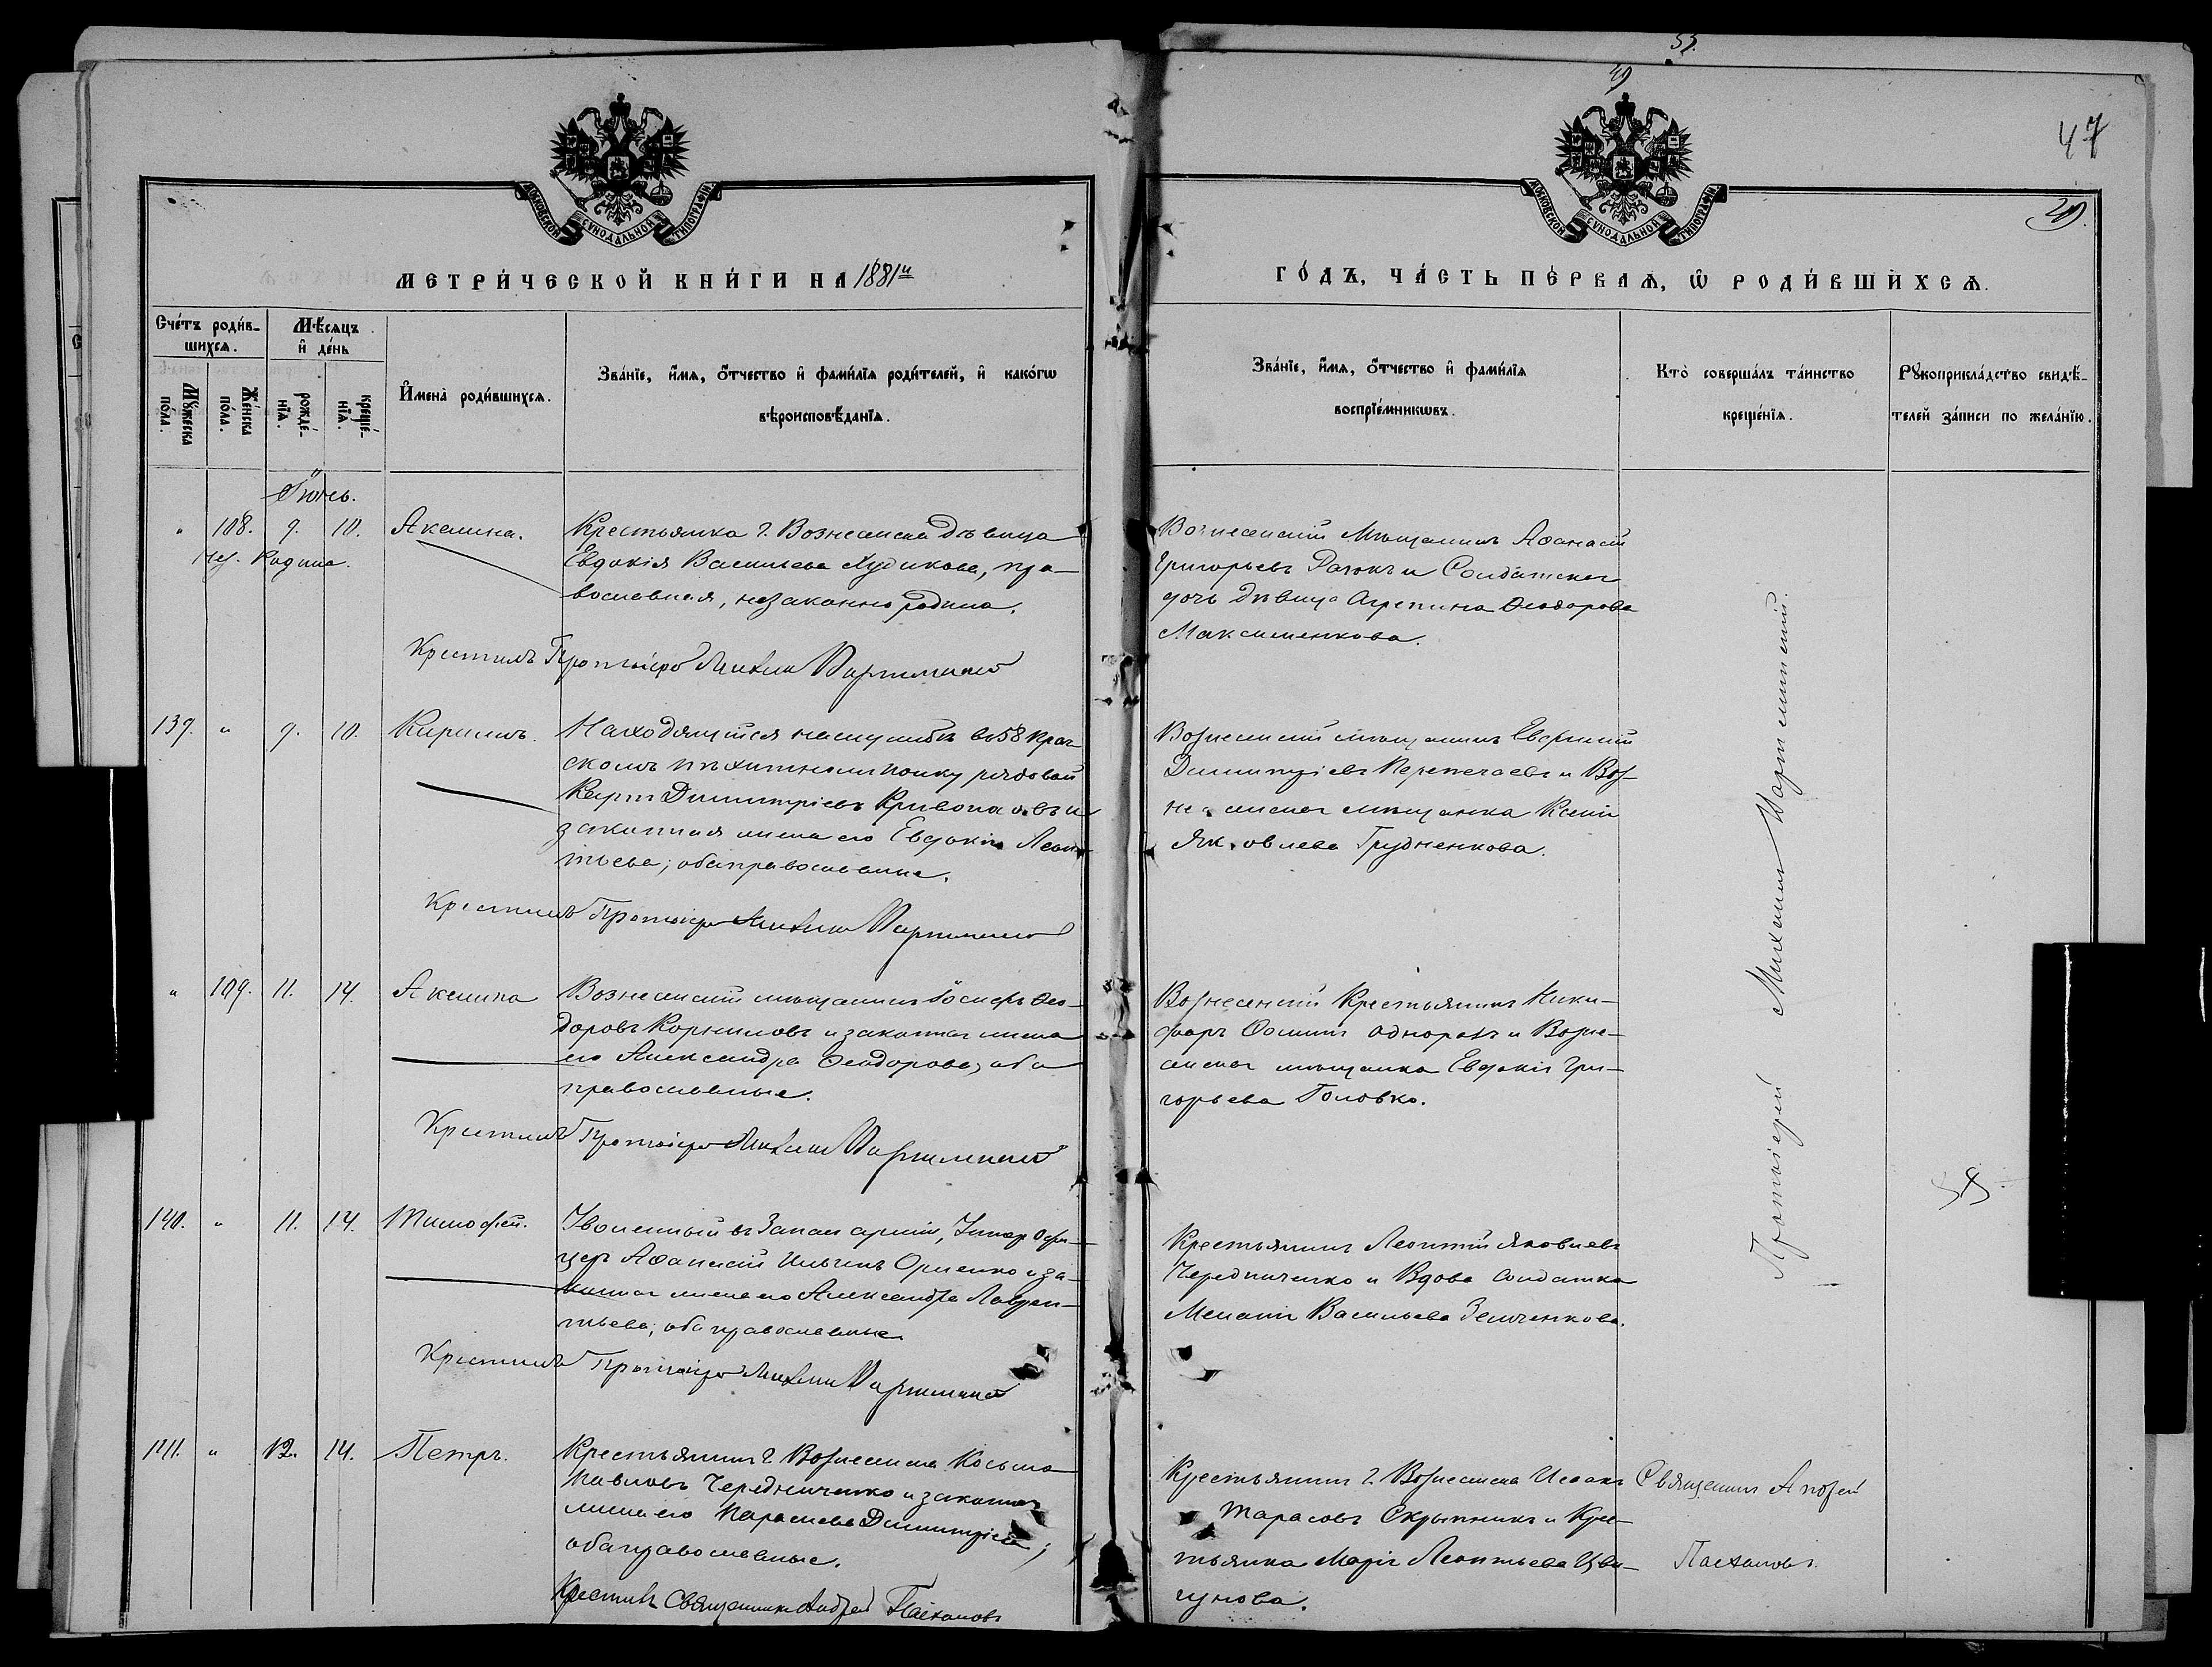 53.
29
47
29.
МОСКОВСКОЙ СѴНОДАЛЬНОЙ ТИПОГРАФІИ
МОСКОВСКОЙ СѴНОДАЛЬНОЙ ТИПОГРАФІИ
МЕТРИ́ЧЕСКОЙ КНИ́ГИ НА 1881й
ГО́ДЪ, ЧА́СТЬ ПЕ́РВАѦ, Ѡ҆ РОДИ́ВШИХСѦ.
Сче́тъ роди́в-
шихсѧ.
Мꙋ́жеска
по́ла.
Же́нска
по́ла.
Мѣ́сѧцъ
и҆ де́нь
рожде́-
нїѧ.
креще́-
нїѧ.
И҆мена̀ роди́вшихсѧ.
Зва́нїе, и҆́мѧ, ѻ҆́тчество и҆ фами́лїѧ роди́телей, и҆ како́гѡ
вѣроисповѣ́данїѧ.
Зва́нїе, и҆́мѧ, ѻ҆́тчество и҆ фами́лїѧ
воспрїе́мникѡвъ.
Кто̀ соверша́лъ та́инство
креще́нїѧ.
Рꙋкоприкла́дство свидѣ́-
телей за́писи по жела́нїю.
Іюнь.
" 108. 9. 10. Акелина.
Крестьянка г. Вознесенска дѣвица
Евдокія Васильева Худикова, пра-
вославная, незаконно родила.
Крестилъ Протоіерей Михаилъ
Вознесенскій Мѣщанинъ Аѳанасій
Григорьевъ и Солдатская
дочь дѣвица Агрепина Ѳеодорова
Максименкова.
139. " 9. 10. Кириллъ.
Находящійся на службѣ въ 58 Праг-
скомъ пѣхотномъ полку рядовой
Карпъ Димитріевъ и
законная жена его Евдокія Леон-
тьева; оба православные.
Крестилъ Протоіерей Михаилъ
Вознесенскій мѣщанинъ Евфимій
Димитріевъ Перепечаевъ и Воз-
несенская мѣщанка Ксенія
Яковлева Грудненкова.
" 109. 11. 14. Акелина
Вознесенскій мѣщанинъ Іосифъ Ѳео-
доровъ Корниловъ и законная жена
его Александра Ѳеодорова, оба
православные.
Крестилъ Протоіерей Михаилъ
Вознесенскій Крестьянинъ Ники-
форъ Ѳоминъ и Возне-
сенская мѣщанка Евдокія Гри-
горьева Головко.
140. " 11. 14. Тимофей.
Уволенный въ Запасъ арміи, Унтеръ Офи-
церъ Аѳанасій Ильинъ и за-
конная жена его Александра Лаврен-
тьева; оба православные
Крестилъ Протоіерей Михаилъ
Крестьянинъ Леонтій Яковлевъ
Чередниченко и Вдова солдатка
Меланія Васильева Земченкова.
Протоіерей Михаилъ
141. " 12. 14. Петръ.
Крестьянинъ г. Вознесенска Косьма
Павловъ Чередниченко и законная
жена его Параскева Димитріева;
оба православные.
Крестилъ Священникъ Андрей
Крестьянинъ г. Вознесенска Исаакъ
Тарасовъ Скрыпникъ и Крес-
тьянка Марія Леонтьева Цви-
гунова.
Священникъ Андрей